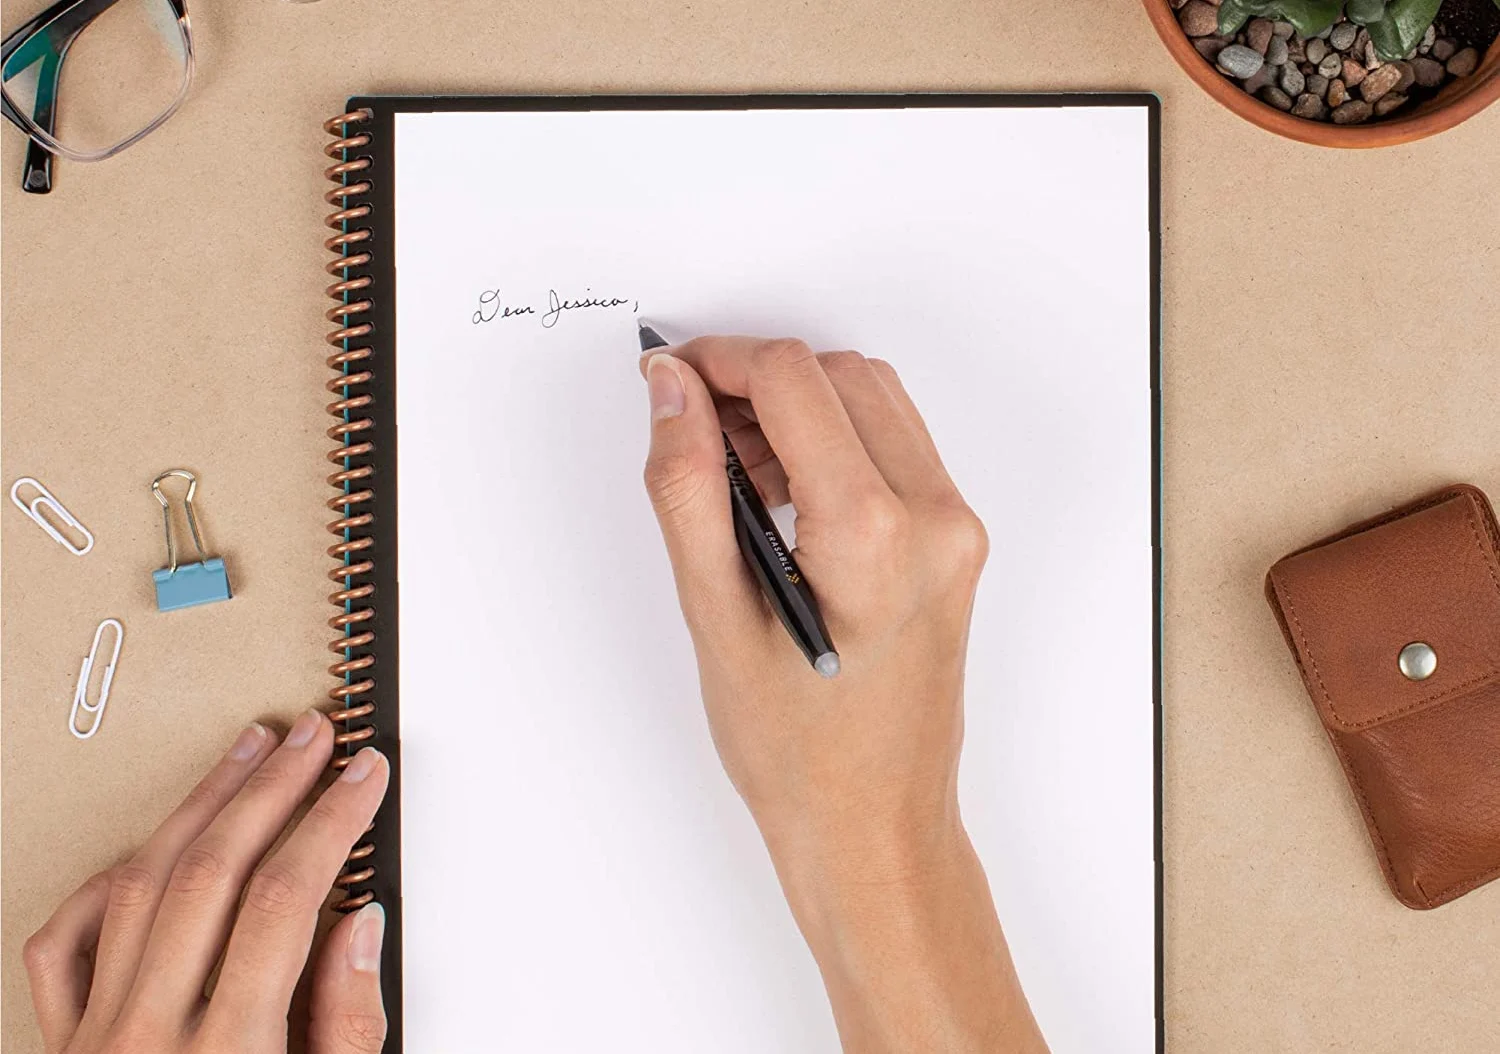 Dear Jessica,
ERASABLE